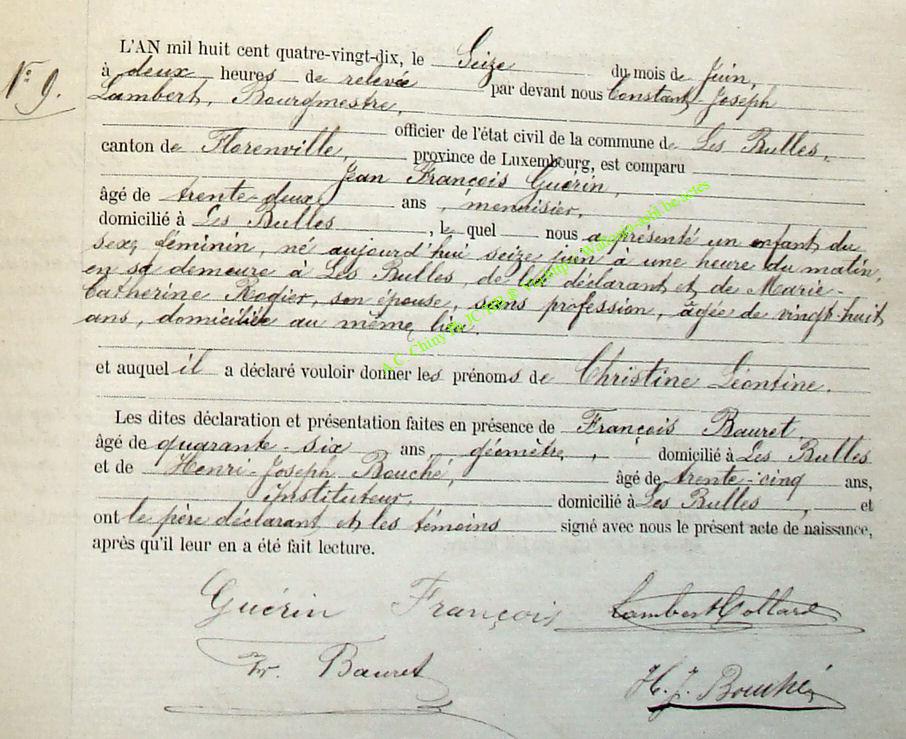 N° 9.
L'AN mil huit cent quatre-vingt-dix, le Seize du mois de Juin,
à deux heures de relevée par devant nous Constant Joseph
Lambert, Bourgmestre,
officier de l'état civil de la commune de Les Bulles,
canton de Florenville, province de Luxembourg, est comparu
Jean François Guérin,
âgé de trente-deux ans, menuisier,
domicilié à Les Bulles, le quel nous a présenté un enfant du
sexe féminin, né aujourd'hui seize juin à une heure du matin,
en sa demeure à Les Bulles, de lui déclarant et de Marie-
Catherine Rogier, son épouse, sans profession, âgée de vingt-huit
ans, domiciliée au même lieu,
et auquel il a déclaré vouloir donner les prénoms de Christine Léontine.
Les dites déclaration et présentation faites en présence de François Bauret
âgé de quarante-six ans, géomètre, domicilié à Les Bulles
et de Henri-Joseph Bouché, âgé de trente-cinq ans,
instituteur, domicilié à Les Bulles, et
ont le père déclarant et les témoins signé avec nous le présent acte de naissance,
après qu'il leur en a été fait lecture.
Guérin François Lambert Collard
Fr. Bauret
H. J. Bouché
A.C. Chiny